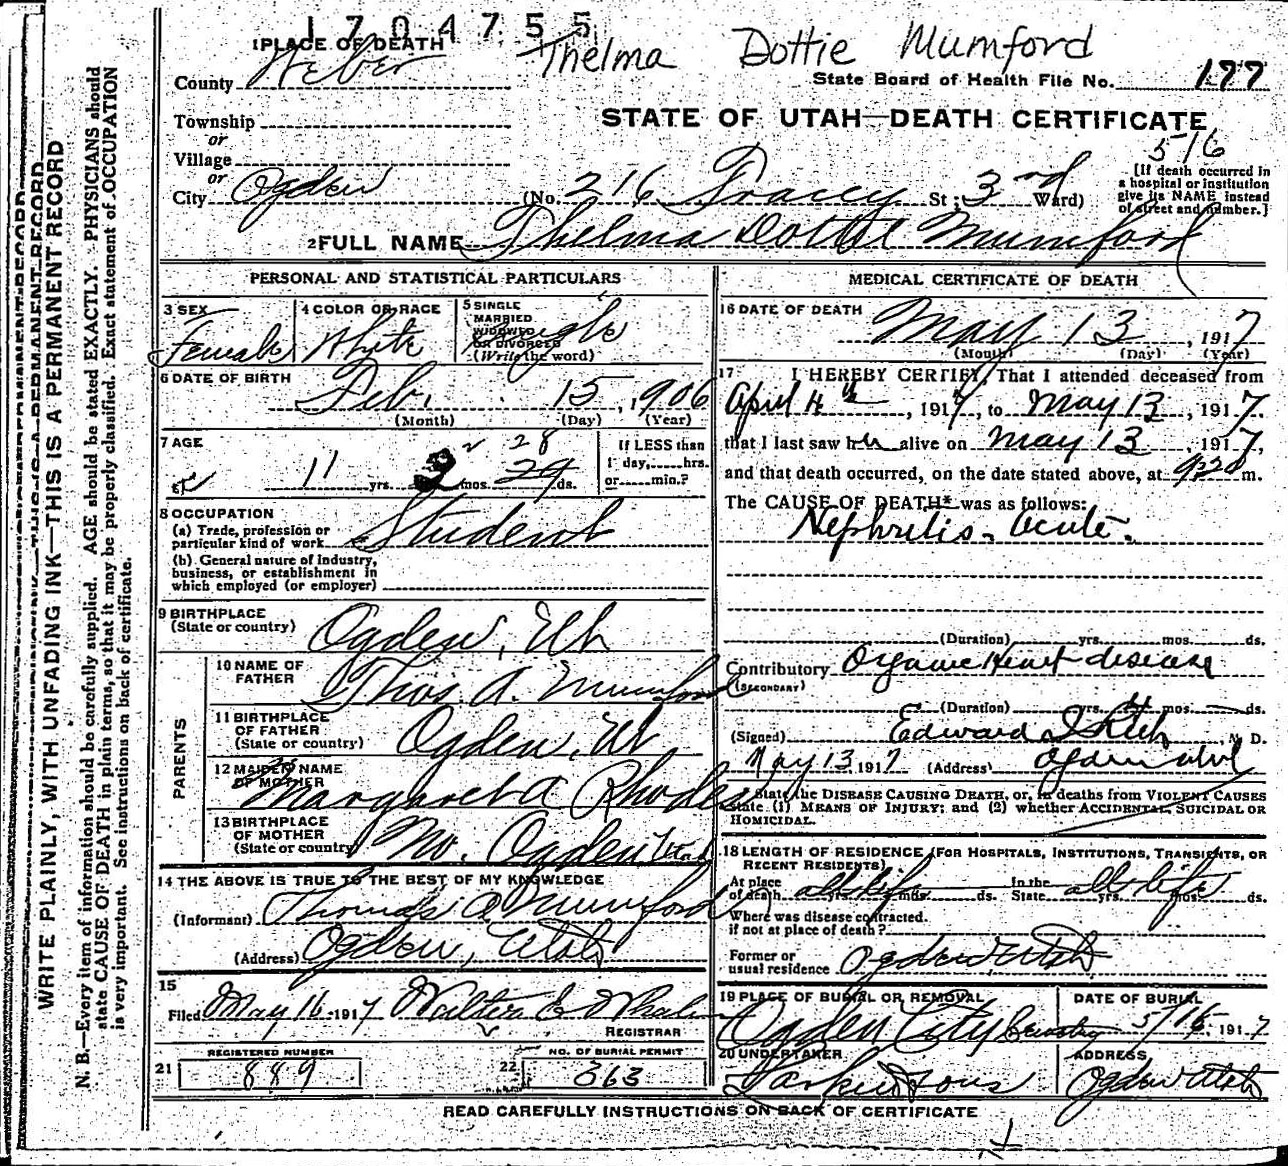 1704755
Thelma Dottie Mumford
1 PLACE OF DEATH
County Weber
State Board of Health File No. 177
STATE OF UTAH—DEATH CERTIFICATE
Township
or
Village
or
City Ogden
(No. 216 Tracey St; 3rd Ward)
516
[If death occurred in
a hospital or institution
give its NAME instead
of street and number.]
2 FULL NAME Thelma Dottie Mumford
PERSONAL AND STATISTICAL PARTICULARS
3 SEX
Female
4 COLOR OR RACE
White
5 SINGLE
MARRIED
WIDOWED
OR DIVORCED
(Write the word)
Single
6 DATE OF BIRTH
Feb. 15, 1906
(Month) (Day) (Year)
7 AGE
11 yrs. 2 mos. 28 29 ds.
If LESS than
1 day,......hrs.
or......min.?
8 OCCUPATION
(a) Trade, profession or
particular kind of work Student
(b) General nature of industry,
business, or establishment in
which employed (or employer)
9 BIRTHPLACE
(State or country) Ogden, Uh
PARENTS
10 NAME OF
FATHER Thos. A. Mumford
11 BIRTHPLACE
OF FATHER
(State or country) Ogden, Ut
12 MAIDEN NAME
OF MOTHER Margaret A Rhodes
13 BIRTHPLACE
OF MOTHER
(State or country) No. Ogden Utah
14 THE ABOVE IS TRUE TO THE BEST OF MY KNOWLEDGE
(Informant) Thomas A Mumford
(Address) Ogden, Utah
15
Filed May 16 1917 Walter E Whalen
REGISTRAR
21 REGISTERED NUMBER
889
22 NO. OF BURIAL PERMIT
363
MEDICAL CERTIFICATE OF DEATH
16 DATE OF DEATH
May 13, 1917
(Month) (Day) (Year)
17 I HEREBY CERTIFY, That I attended deceased from
April 4th, 1917, to May 13, 1917,
that I last saw her alive on May 13, 1917,
and that death occurred, on the date stated above, at 9:20 a m.
The CAUSE OF DEATH* was as follows:
Nephritis. Acute.
(Duration) yrs. mos. ds.
Contributory Organic Heart disease
(SECONDARY)
(Duration) yrs. mos. ds.
(Signed) Edward M. D.
May 13 1917 (Address) Ogden Utah
State the DISEASE CAUSING DEATH, or, in deaths from VIOLENT CAUSES
state (1) MEANS OF INJURY; and (2) whether ACCIDENTAL, SUICIDAL OR
HOMICIDAL.
18 LENGTH OF RESIDENCE (FOR HOSPITALS, INSTITUTIONS, TRANSIENTS, OR
RECENT RESIDENTS)
At place
of death all life yrs. mos. ds. In the
State all life yrs. mos. ds.
Where was disease contracted.
if not at place of death?
Former or
usual residence Ogden Utah
19 PLACE OF BURIAL OR REMOVAL
Ogden City Cemetery
DATE OF BURIAL
5/16, 1917
20 UNDERTAKER
Larkin & Sons
ADDRESS
Ogden Utah
READ CAREFULLY INSTRUCTIONS ON BACK OF CERTIFICATE
WRITE PLAINLY, WITH UNFADING INK—THIS IS A PERMANENT RECORD
N. B.—Every item of information should be carefully supplied. AGE should be stated EXACTLY. PHYSICIANS should
state CAUSE OF DEATH in plain terms, so that it may be properly classified. Exact statement of OCCUPATION
is very important. See instructions on back of certificate.